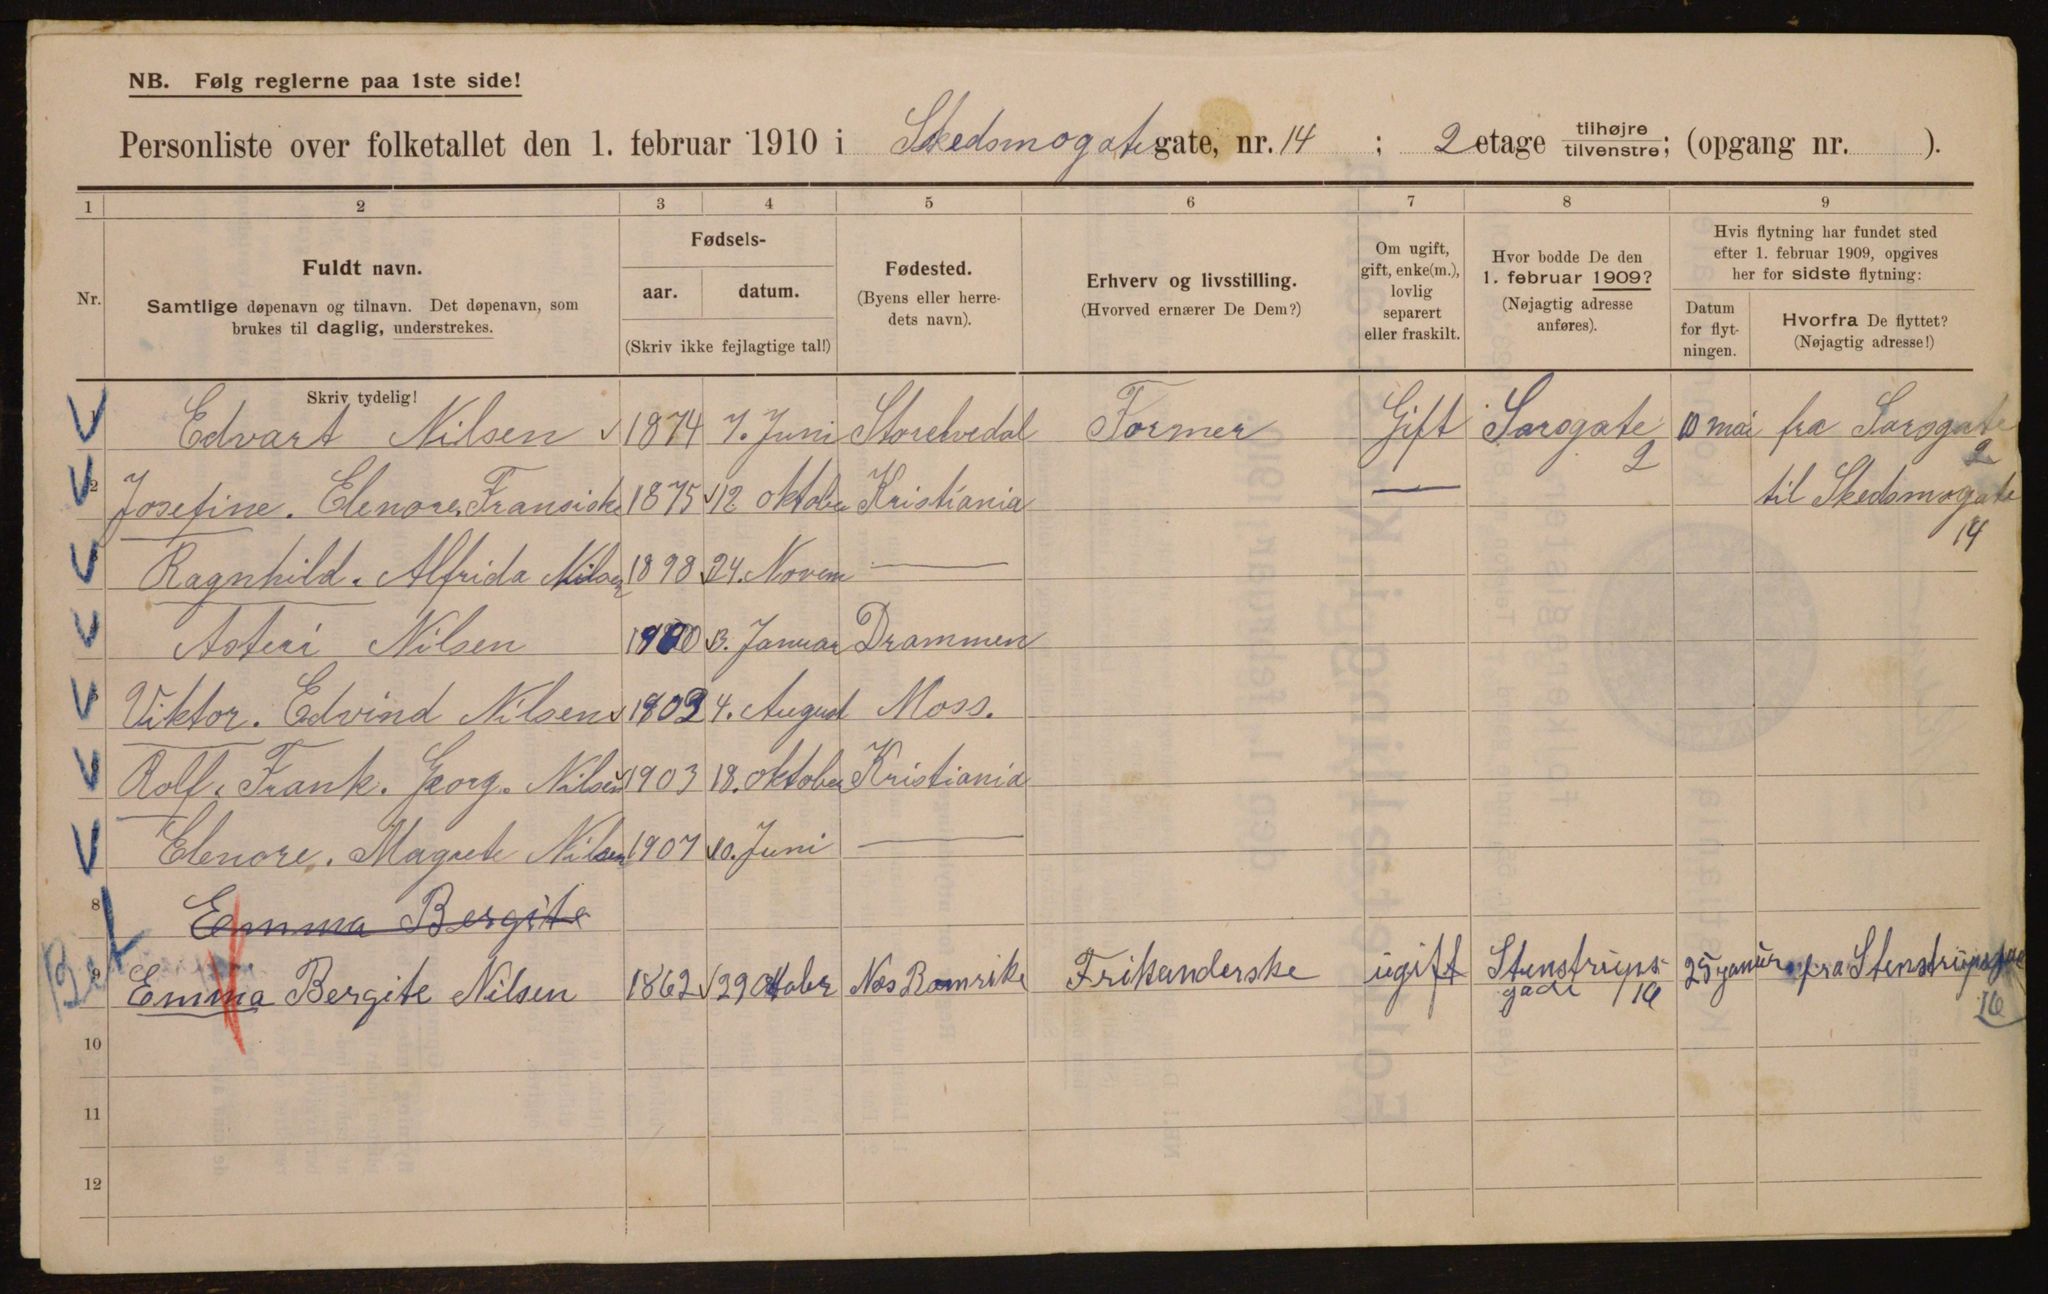 NB. Følg reglerne paa 1ste side!
Personliste over folketallet den 1. februar 1910 i Skedsmogate gate, nr. 14 ; 2 etage tilhøjre tilvenstre; (opgang nr. ).
1 2 3 4 5 6 7 8 9
Nr.
Fuldt navn.
Samtlige døpenavn og tilnavn. Det døpenavn, som
brukes til daglig, understrekes.
Fødsels-
aar. datum.
(Skriv ikke fejlagtige tal!)
Fødested.
(Byens eller herre-
dets navn).
Erhverv og livsstilling.
(Hvorved ernærer De Dem?)
Om ugift,
gift, enke(m.),
lovlig
separert
eller fraskilt.
Hvor bodde De den
1. februar 1909?
(Nøjagtig adresse
anføres).
Hvis flytning har fundet sted
efter 1. februar 1909, opgives
her for sidste flytning:
Datum
for flyt-
ningen.
Hvorfra De flyttet?
(Nøjagtig adresse!)
Skriv tydelig!
Edvart Nilsen 1874 7. Juni Storelvedal Former Gift Sarsgate 2 10 mai fra Sarsgate 2
2 Josefine. Elenore. Fransiske 1875 12 oktober Kristiania — til Skedsmogate 14
Ragnhild. Alfrida Nilsen 1898 24. Novem —
Asteri Nilsen 1900 3. Januar Drammen
Viktor. Edvind Nilsen 1902 4. August Moss.
Rolf. Frank. Georg. Nilsen 1903 18. oktober Kristiania
Elenore. Magrete Nilsen 1907 10. Juni —
8 Emma Bergite
9 Emma Bergite Nilsen 1862 29 Oktober Nes Romrike Frikanderske ugift Stenstrups-
gade 16 25 januer fra Stenstrupsgae 16
10
11
12